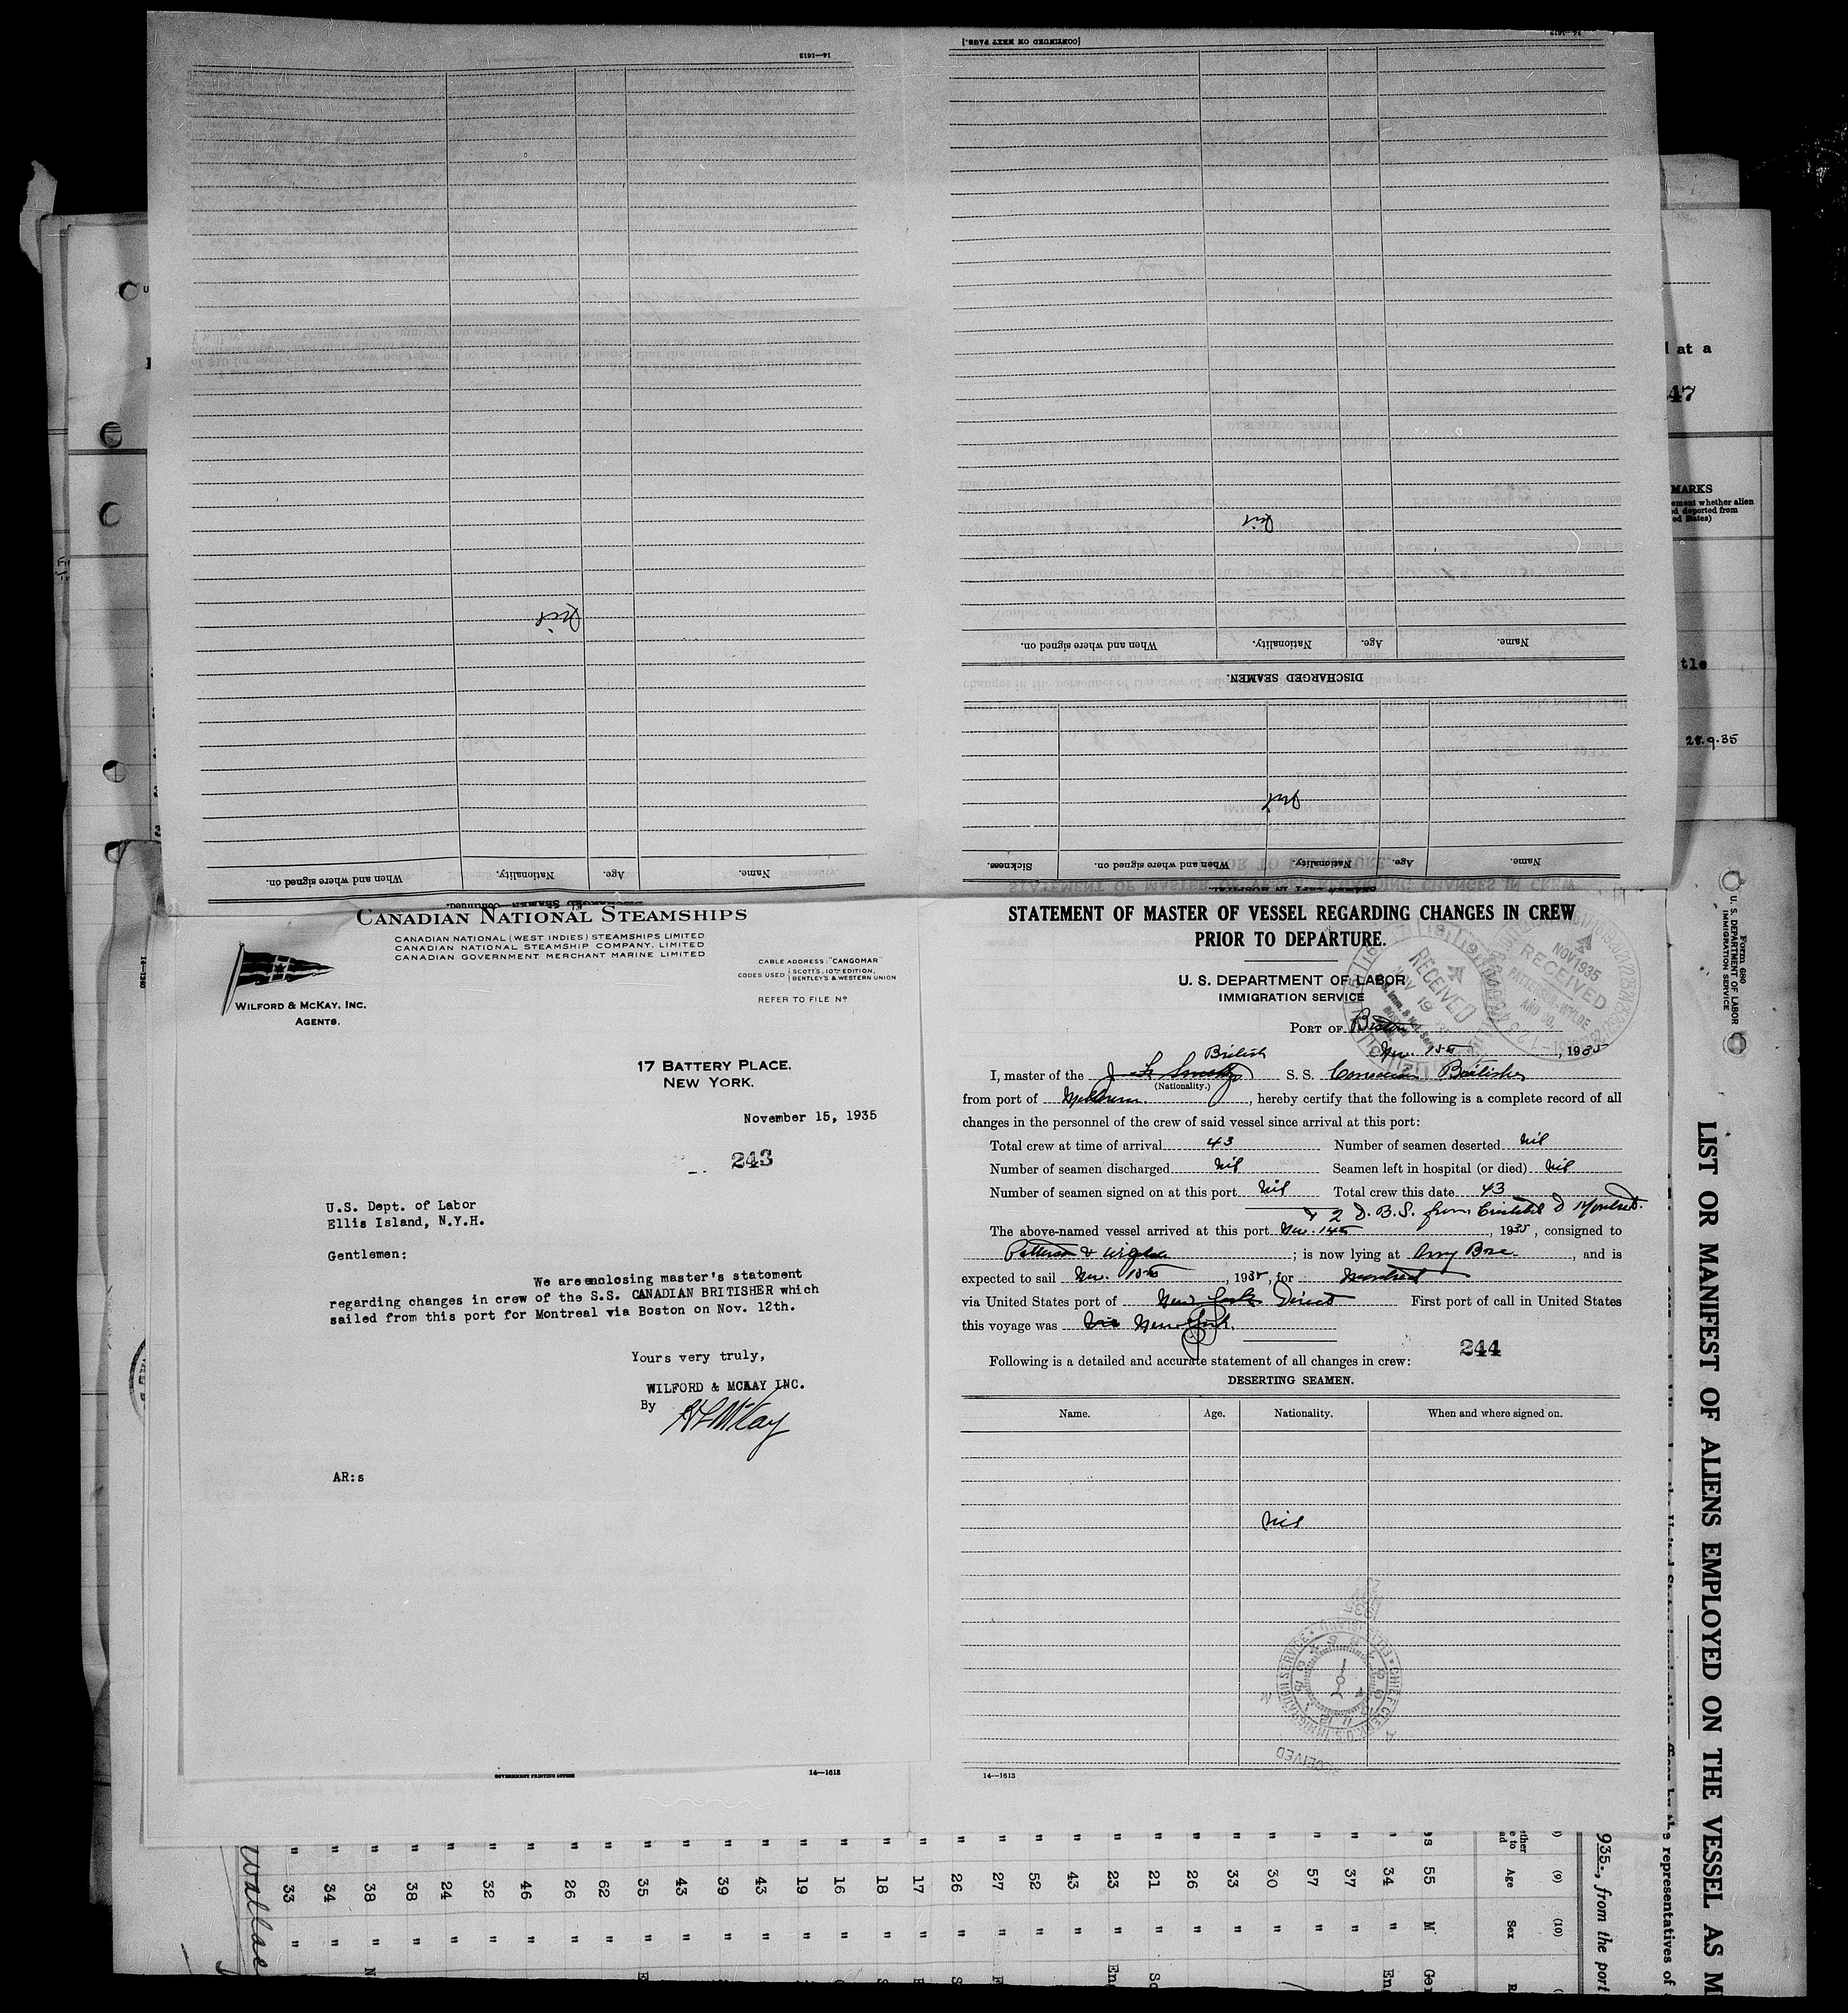 14—1613
[CONTINUED ON NEXT PAGE.]
14—1613
Nil
Nil
When and where signed on.
Nationality.
Age.
Name.
DISCHARGED SEAMEN.
Nil
Sickness.
When and where signed on.
Nationality.
Age.
Name.
When and where signed on.
Nationality.
Age.
Name.
DISCHARGED SEAMEN—Continued.
CANADIAN NATIONAL STEAMSHIPS
CANADIAN NATIONAL (WEST INDIES) STEAMSHIPS LIMITED
CANADIAN NATIONAL STEAMSHIP COMPANY, LIMITED
CANADIAN GOVERNMENT MERCHANT MARINE LIMITED
CABLE ADDRESS: "CANGOMAR"
CODES USED SCOTT'S, 10TH EDITION,
BENTLEY'S & WESTERN UNION
REFER TO FILE No
WILFORD & MCKAY, INC.
AGENTS.
17 BATTERY PLACE.
NEW YORK.
November 15, 1935
243
U.S. Dept. of Labor
Ellis Island, N.Y.H.
Gentlemen:
We are enclosing master's statement
regarding changes in crew of the S.S. CANADIAN BRITISHER which
sailed from this port for Montreal via Boston on Nov. 12th.
Yours very truly,
WILFORD & MCKAY INC.
By H L McKay
AR:s
GOVERNMENT PRINTING OFFICE
14—1613
STATEMENT OF MASTER OF VESSEL REGARDING CHANGES IN CREW
PRIOR TO DEPARTURE.
U. S. DEPARTMENT OF LABOR
IMMIGRATION SERVICE
RECEIVED
NOV 19
NOV 1935
RECEIVED
PATTERSON, WYLDE
AND CO.
PORT OF Boston
Nov. 15th, 1935
British
I, master of the S. S. Canadian Britisher
(Nationality.)
from port of Melbourne, hereby certify that the following is a complete record of all
changes in the personnel of the crew of said vessel since arrival at this port:
Total crew at time of arrival 43 Number of seamen deserted Nil
Number of seamen discharged Nil Seamen left in hospital (or died) Nil
Number of seamen signed on at this port Nil Total crew this date 43
& 2 D. B. S. from Cristobal to Montreal.
The above-named vessel arrived at this port Nov. 14th, 1935, consigned to
Patterson & Wylde; is now lying at Army Base, and is
expected to sail Nov. 15th, 1935, for Montreal
via United States port of New York Direct First port of call in United States
this voyage was via New York.
244
Following is a detailed and accurate statement of all changes in crew:
DESERTING SEAMEN.
Name. Age. Nationality. When and where signed on.
Nil
CHIEF CLERK U.S. IMMIGRATION SERVICE ELLIS ISLAND
RECEIVED
14—1613
at a
47
MARKS
ement whether alien
d deported from
ed States)
tle
28.9.35
Form 680
U. S. DEPARTMENT OF LABOR
IMMIGRATION SERVICE
LIST OR MANIFEST OF ALIENS EMPLOYED ON THE VESSEL AS M
the representatives of
935, from the port
(9) (10)
Age Sex
55 M
34 "
37 "
57 "
30 "
33 "
26 "
21 "
23 "
43 "
52 "
27 "
26 "
17 "
18 "
16 "
19 "
43 "
39 "
43 "
35 "
62 "
26 "
46 "
32 "
24 "
38 "
38 "
34 "
33 "
Wallace